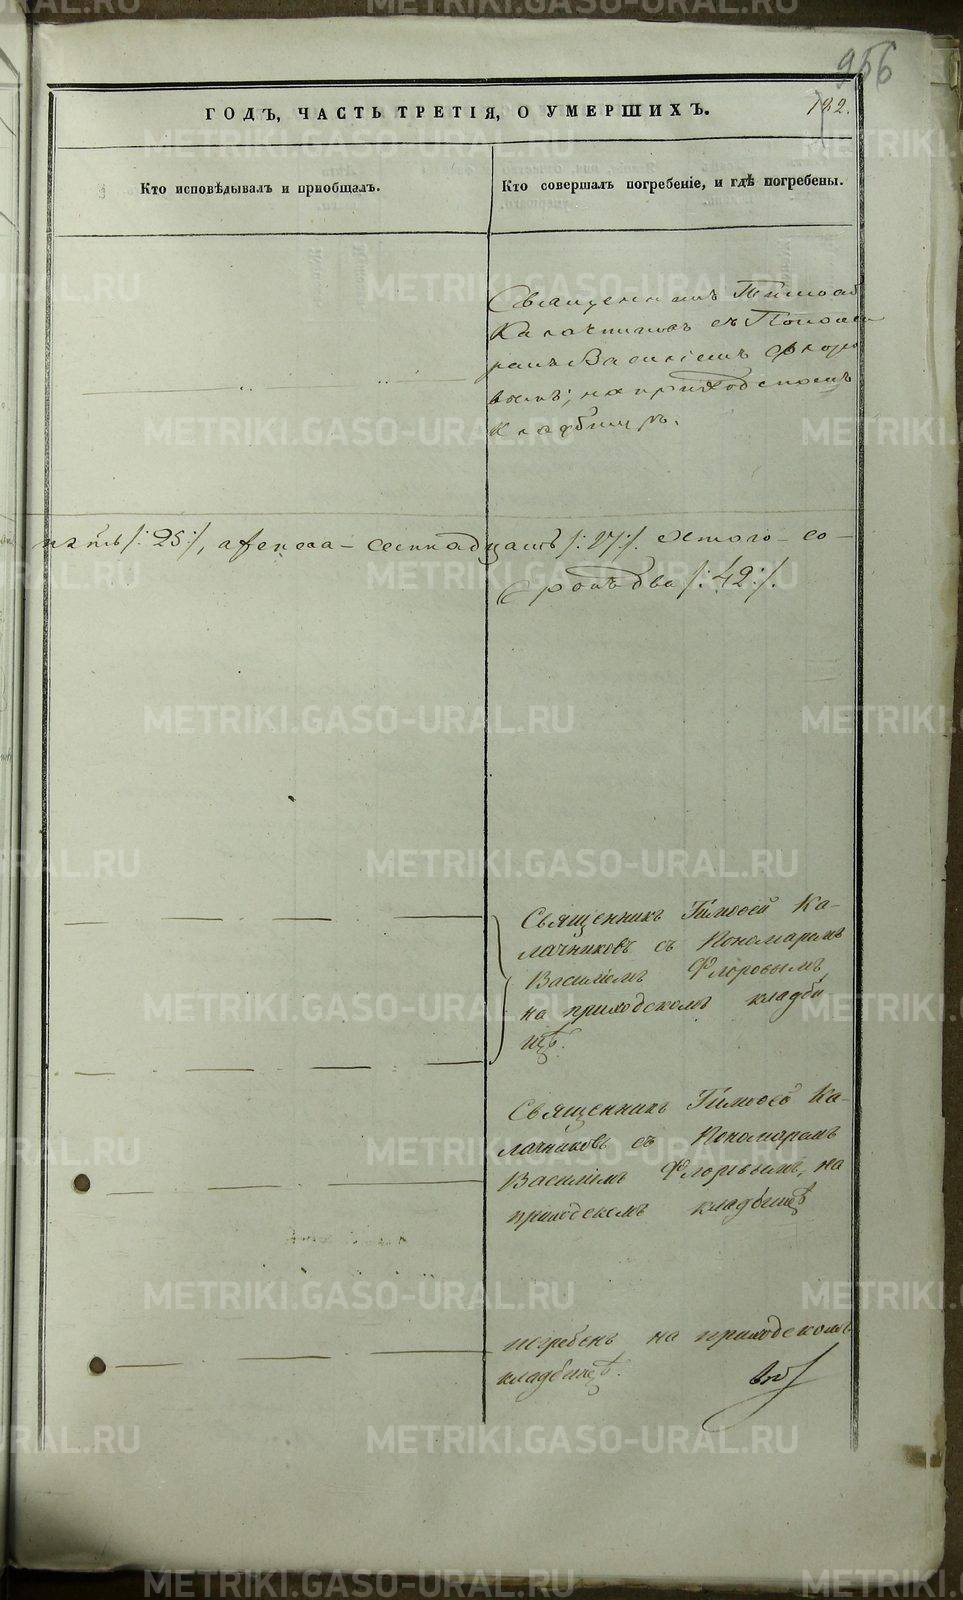 956
ГОДЪ, ЧАСТЬ ТРЕТІЯ, О УМЕРШИХЪ.
192.
Кто исповѣдывалъ и пріобщалъ.
Кто совершалъ погребеніе, и гдѣ погребены.
Священникъ Тимоѳей
Калачниковъ съ Понома
ремъ Василіемъ Флоро
вымъ; на приходскомъ
Кладбищѣ.
пять /: 25 :/, а женска – семнадцать /: 17 :/. Итого – со –
рокъ два /: 42 :/.
Священникъ Тимоѳей Ка-
лачниковъ съ Пономаремъ
Василіемъ Флоровымъ
на приходскомъ кладби
щѣ.
Священникъ Тимоѳей Ка-
лачниковъ съ Пономаремъ
Василіемъ Флоровымъ, на
приходскомъ кладбищѣ
погребенъ на приходскомъ
кладбищѣ.
METRIKI.GASO-URAL.RU